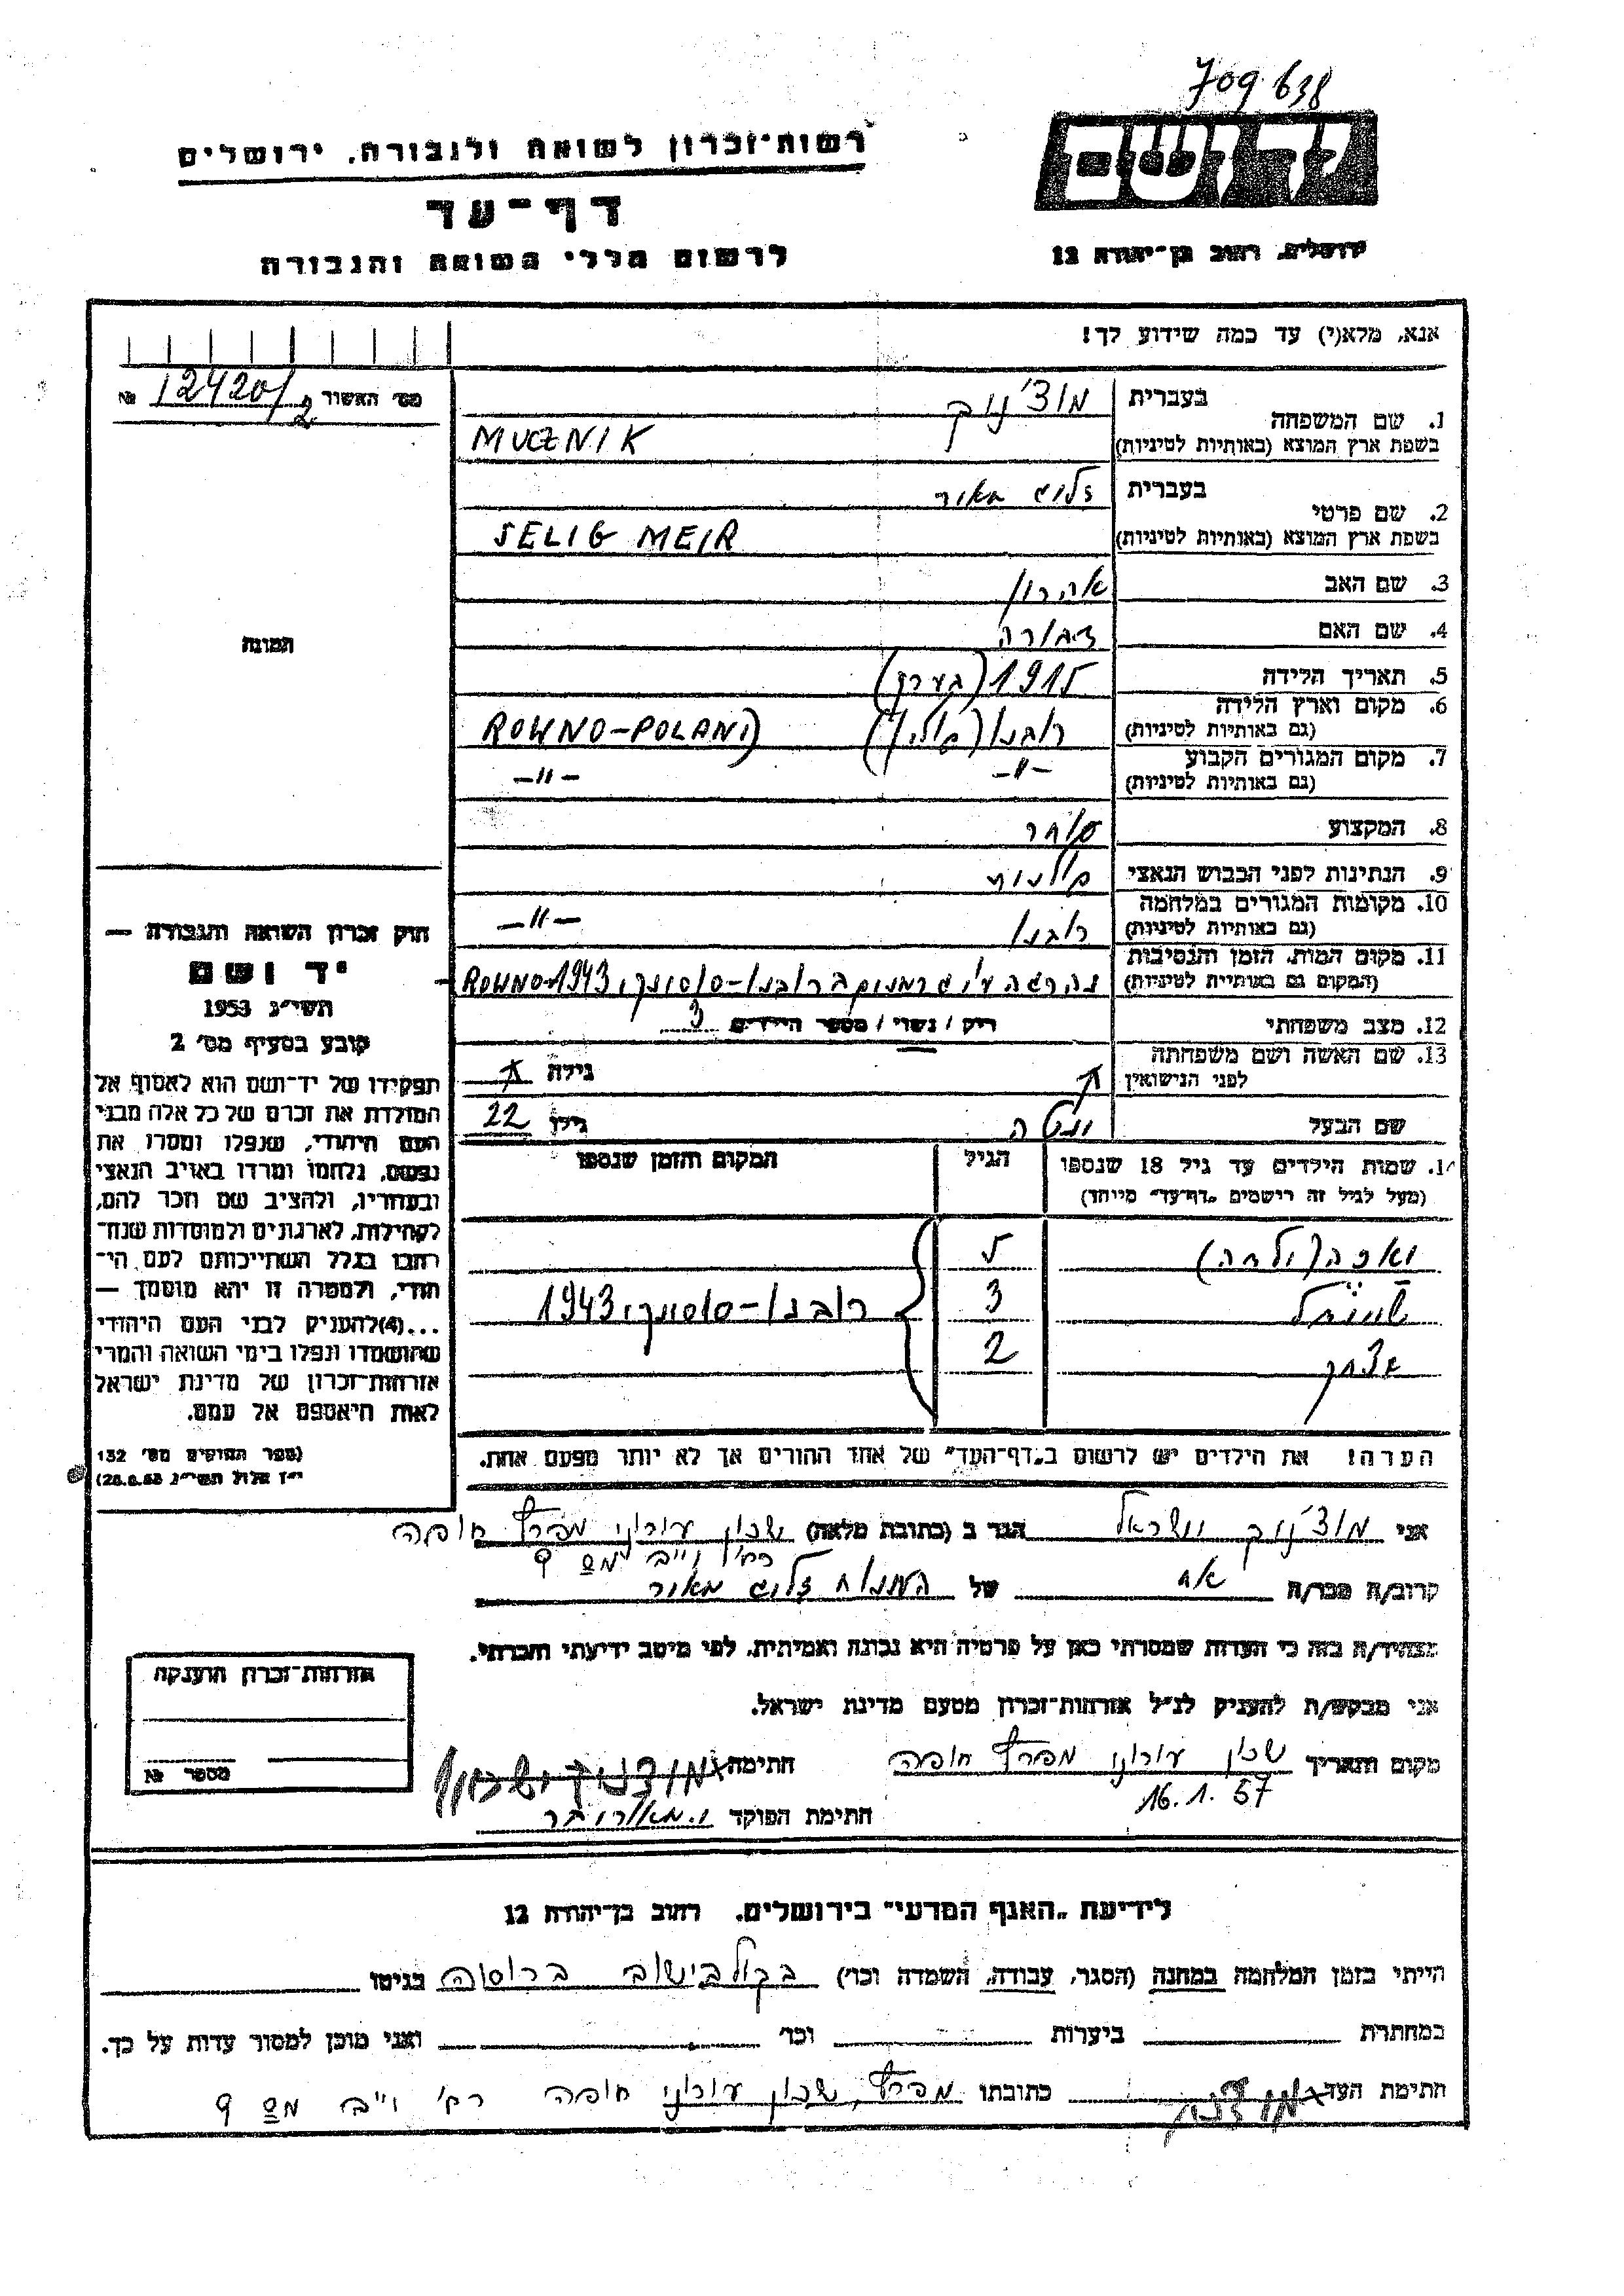 709 638
יד ושם
רשות־זכרון לשואה ולגבורה, ירושלים
דף־עד
לרשום חללי השואה והגבורה
ירושלים, רחוב בן־יהודה 12
אנא, מלא(י) עד כמה שידוע לך!
מס׳ האשור 12420/2 №
1. שם המשפחה
בעברית מוצ׳ניק
בשפת ארץ המוצא (באותיות לטיניות) MUCZNIK
2. שם פרטי
בעברית זליג מאיר
בשפת ארץ המוצא (באותיות לטיניות) SELIG MEIR
3. שם האב אהרון
4. שם האם דבורה
5. תאריך הלידה 1915 (בערך)
6. מקום וארץ הלידה
(גם באותיות לטיניות) רובנו (פולין) ROWNO-POLAND
7. מקום המגורים הקבוע
(גם באותיות לטיניות) -"- -"-
8. המקצוע סוחר
9. הנתינות לפני הכבוש הנאצי פולנית
10. מקומות המגורים במלחמה
(גם באותיות לטיניות) רובנו -"-
11. מקום המות, הזמן והנסיבות
(המקום גם באותיית לטיניות) נהרג ע״י גרמנים ברובנו-סוסונקי 1943 ROWNO-
12. מצב משפחתי רוק / נשוי / מספר הילדים 3
13. שם האשה ושם משפחתה
לפני הנישואין
גילה
שם הבעל
גילו 22
התמונה
14. שמות הילדים עד גיל 18 שנספו
(מעל לגיל זה רישמים „דף־עד״ מייחד)
הגיל
המקום והזמן שנספו
5
3
רובנו-סוסונקי 1943
יצחק 2
הערה! את הילדים יש לרשום ב„דף־העד״ של אחד ההורים אך לא יותר מפעם אחת.
חוק זכרון השואה והגבורה —
יד ושם
תשי״ג 1953
קובע בסעיף מס׳ 2
תפקידו של יד־ושם הוא לאסוף אל
המולדת את זכרם של כל אלה מבני
העם היהודי, שנפלו ומסרו את
נפשם, נלחמו ומרדו באויב הנאצי
ובעוזריו, ולהציב שם וזכר להם,
לקהילות, לארגונים ולמוסדות שנח־
רבו בגלל השתייכותם לעם הי־
הודי, ולמטרה זו יהא מוסמך —
...(4) להעניק לבני העם היהודי
שהושמדו ונפלו בימי השואה והמרי
אזרחות־זכרון של מדינת ישראל
לאות היאספם אל עמם.
(ספר החוקים מס׳ 132
י״ז אלול תשי״ג 28.8.53)
אני מוצ׳ניק ישראל הגר ב (כתובת מלאה) שכון עירוני מפרץ חיפה
מס 9
קרוב/ה מכר/ה אח של המנוח זליג מאיר
מצהיר/ה בזה כי העדות שמסרתי כאן על פרטיה היא נכונה ואמיתית, לפי מיטב ידיעתי והכרתי.
אני מבקש/ת להעניק לנ״ל אזרחות־זכרון מטעם מדינת ישראל.
מקום ותאריך שכון עירוני מפרץ חיפה
16.1.57
חתימה מוצ׳ניק ישראל
חתימת הפוקד
אזרחות־זכרון הוענקה
מספר №
לידיעת „האגף המדעי״ בירושלים, רחוב בן־יהודה 12
הייתי בזמן המלחמה במחנה (הסגר, עבודה, השמדה וכו׳) בקוליבישוב ברוסיה בגיטו
במחתרת ביערות וכו׳ ואני מוכן למסור עדות על כך.
חתימת העד מוצ׳ניק כתובתו מפרץ, שכון עירוני חיפה מס 9